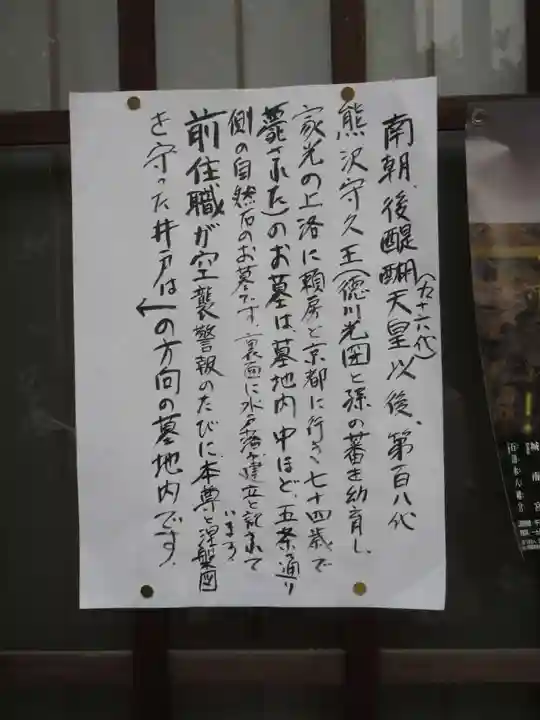 南朝、後醍醐天皇(九十六代)以後、第百八代
熊沢守久王(徳川光圀と孫の蕃を幼育し、
家光の上洛に頼房と京都に行き七十四歳で
薨された)のお墓は墓地内中ほど、五条通り
側の自然石のお墓です。裏面に水戸藩が建立と記されて
います。
前住職が空襲警報のたびに本尊と涅槃図
を守った井戸は←の方向の墓地内です。
城南宮